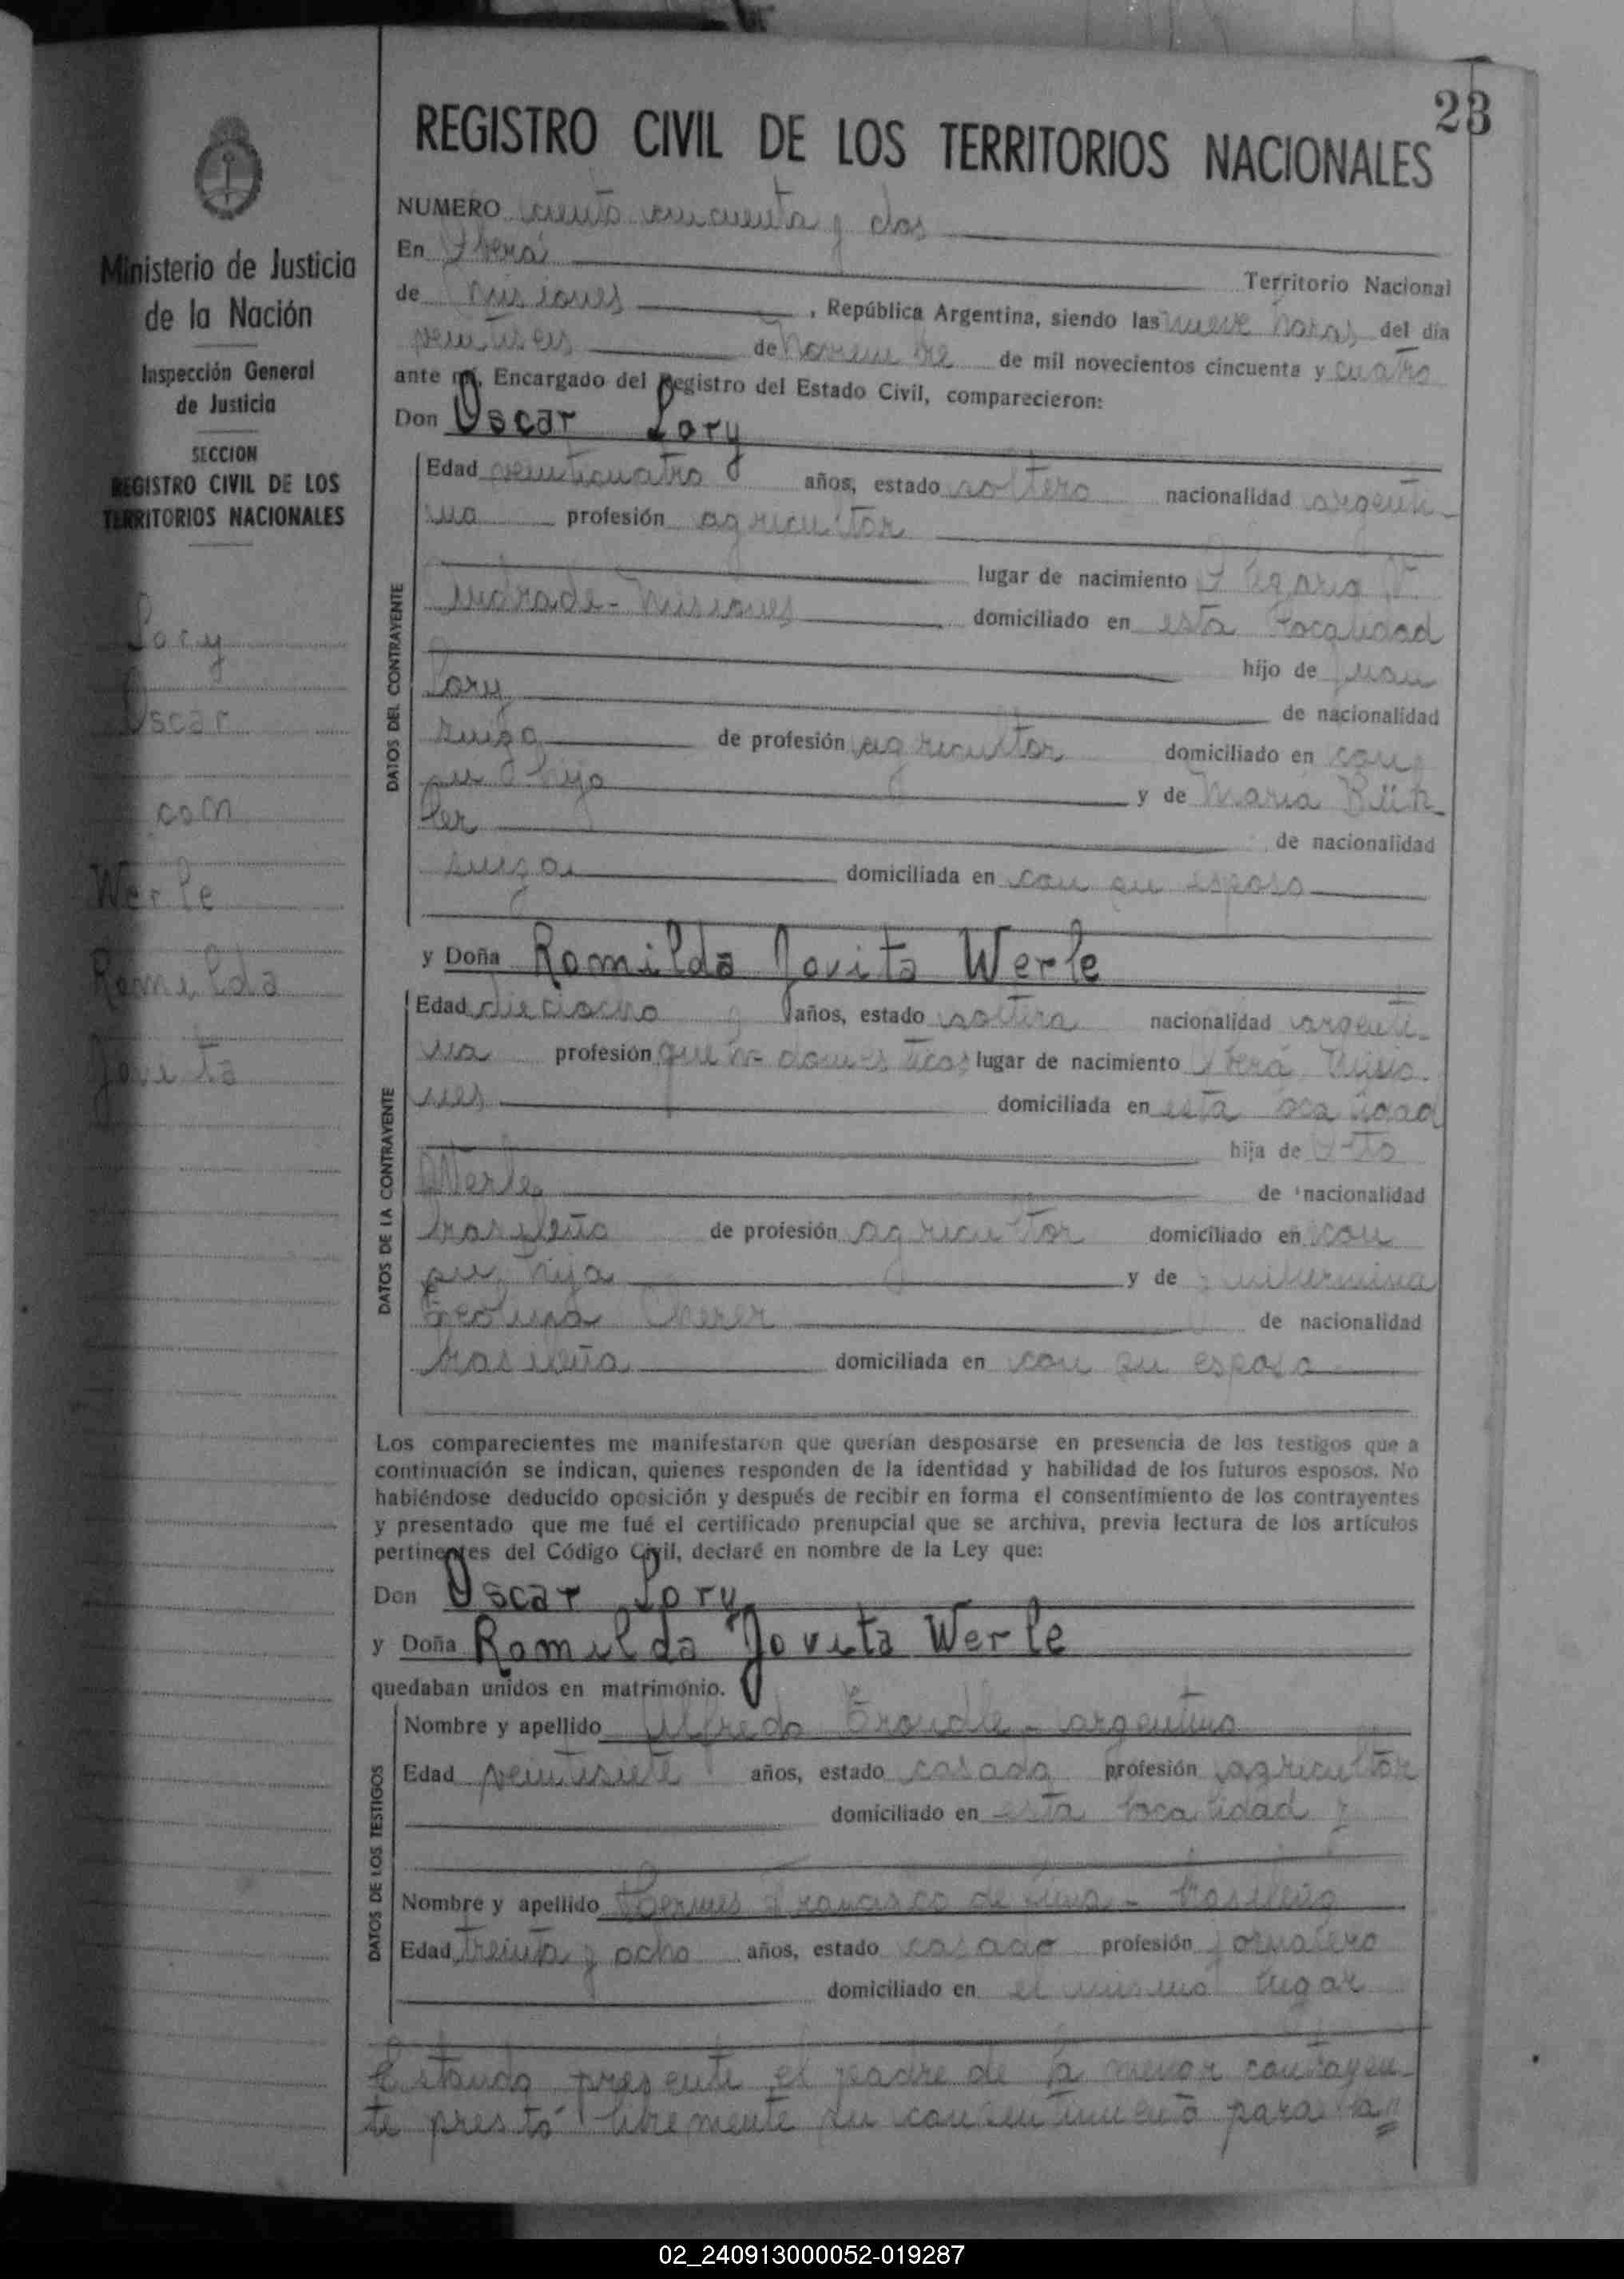 23
REGISTRO CIVIL DE LOS TERRITORIOS NACIONALES
Ministerio de Justicia
de la Nación
Inspección General
de Justicia
SECCION
REGISTRO CIVIL DE LOS
TERRITORIOS NACIONALES
Lory
Oscar
con
Werle
Romilda
Jovita
NUMERO ciento cincuenta y dos
En Oberá Territorio Nacional
de Misiones, República Argentina, siendo las nueve horas del día
veintiseis de Noviembre de mil novecientos cincuenta y cuatro
ante mí, Encargado del Registro del Estado Civil, comparecieron:
Don Oscar Lory
DATOS DEL CONTRAYENTE
Edad veinticuatro años, estado soltero nacionalidad argenti-
no profesión agricultor
lugar de nacimiento Olegario V.
Andrade - Misiones domiciliado en esta localidad
hijo de Juan
Lory de nacionalidad
suizo de profesión agricultor domiciliado en con
su hijo y de Maria Büh-
ler de nacionalidad
suiza domiciliada en con su esposo
y Doña Romilda Jovita Werle
DATOS DE LA CONTRAYENTE
Edad dieciocho años, estado soltera nacionalidad argenti-
na profesión queh- domesticos lugar de nacimiento Oberá Misio-
nes domiciliada en esta localidad
hija de Oto
Werle de nacionalidad
brasileño de profesión agricultor domiciliado en con
su hija y de Guillermina
de nacionalidad
brasileña domiciliada en con su esposo
Los comparecientes me manifestaron que querían desposarse en presencia de los testigos que a
continuación se indican, quienes responden de la identidad y habilidad de los futuros esposos. No
habiéndose deducido oposición y después de recibir en forma el consentimiento de los contrayentes
y presentado que me fué el certificado prenupcial que se archiva, previa lectura de los artículos
pertinentes del Código Civil, declaré en nombre de la Ley que:
Don Oscar Lory
y Doña Romilda Jovita Werle
quedaban unidos en matrimonio.
DATOS DE LOS TESTIGOS
Nombre y apellido Alfredo - argentino
Edad veintisiete años, estado casado profesión agricultor
domiciliado en esta localidad y
Nombre y apellido Hermes Francisco de Lima - brasileño
Edad treinta y ocho años, estado casado profesión jornalero
domiciliado en el mismo lugar
Estando presente el padre de la menor contrayen-
te prestó libremente su consentimiento para la
02_240913000052-019287